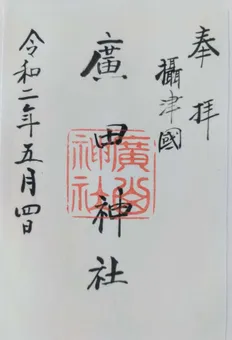 奉拝
攝津國
廣田神社
令和二年五月四日
廣田
神社